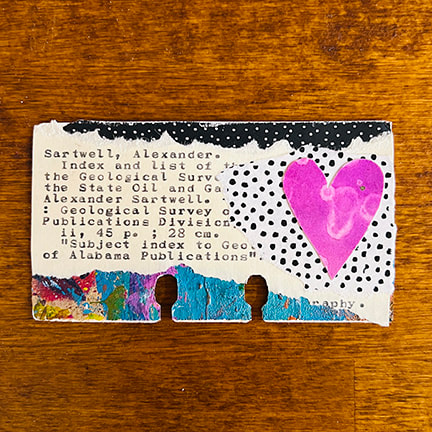 Sartwell, Alexander.
Index and list of th
the Geological Surve
the State Oil and Ga
Alexander Sartwell.
: Geological Survey o
Publications Division
ii, 45 p. ; 28 cm.
"Subject index to Geol
of Alabama Publications"
raphy.